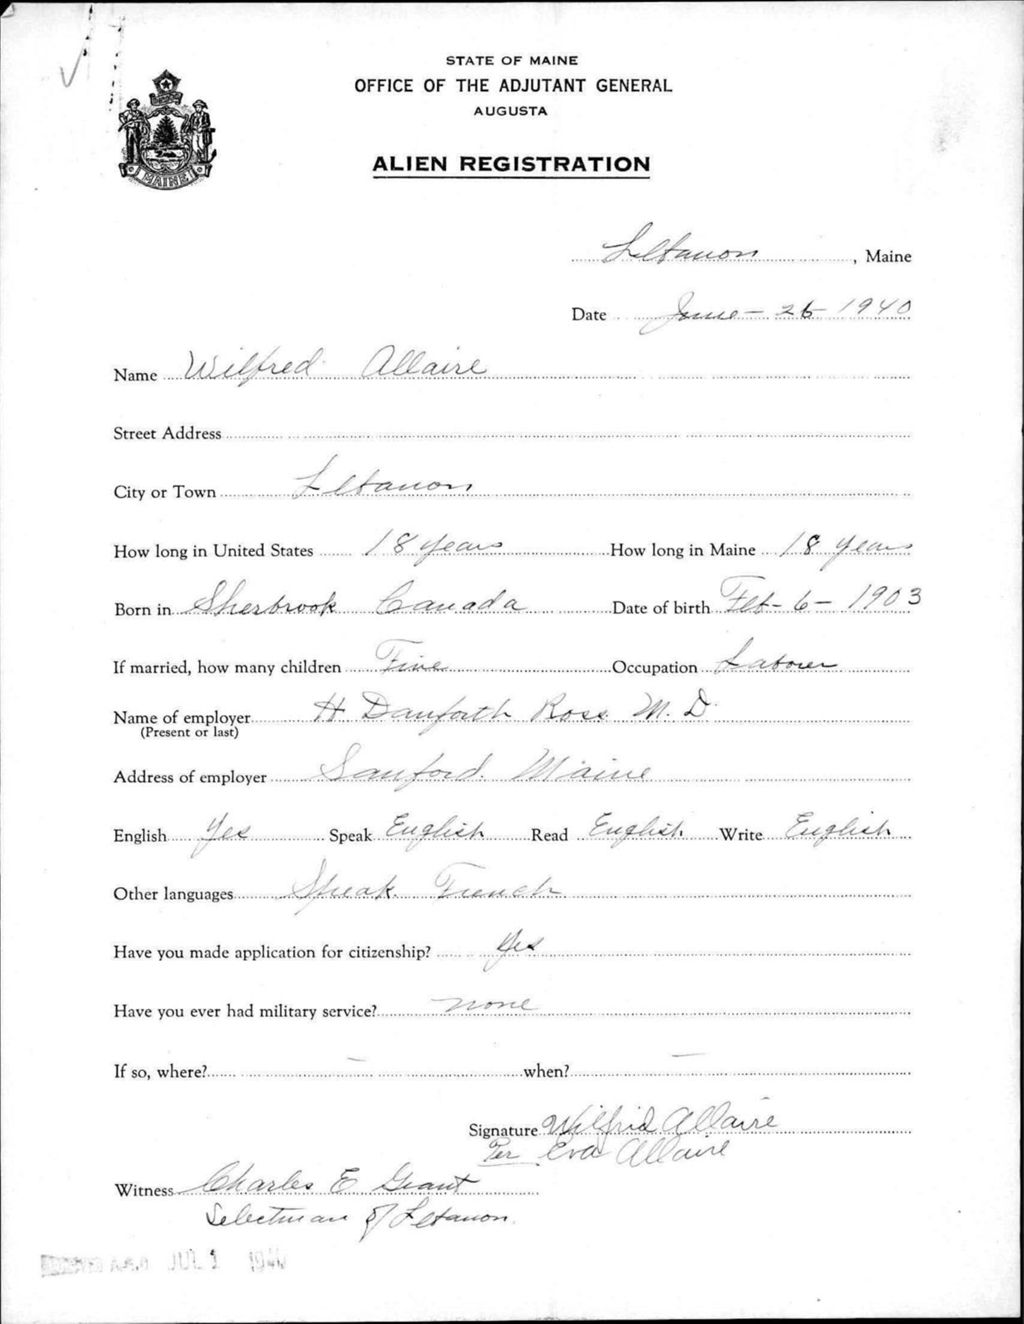 STATE OF MAINE
OFFICE OF THE ADJUTANT GENERAL
AUGUSTA
ALIEN REGISTRATION
MAINE
Lebanon, Maine
Date June - 26 - 1940
Name Wilfred Allaire
Street Address
City or Town Lebanon
How long in United States 18 years How long in Maine 18 years
Born in Sherbrook Canada Date of birth Feb - 6 - 1903
If married, how many children Five Occupation Laborer
Name of employer H Danforth Ross M. D.
(Present or last)
Address of employer Sanford. Maine
English Yes Speak English Read English Write English
Other languages Speak French
Have you made application for citizenship? Yes
Have you ever had military service? none
If so, where? – when? –
Signature Wilfrid Allaire
Per Eva Allaire
Witness Charles E Grant
Selectman of Lebanon.
A.G.O JUL 1 1940